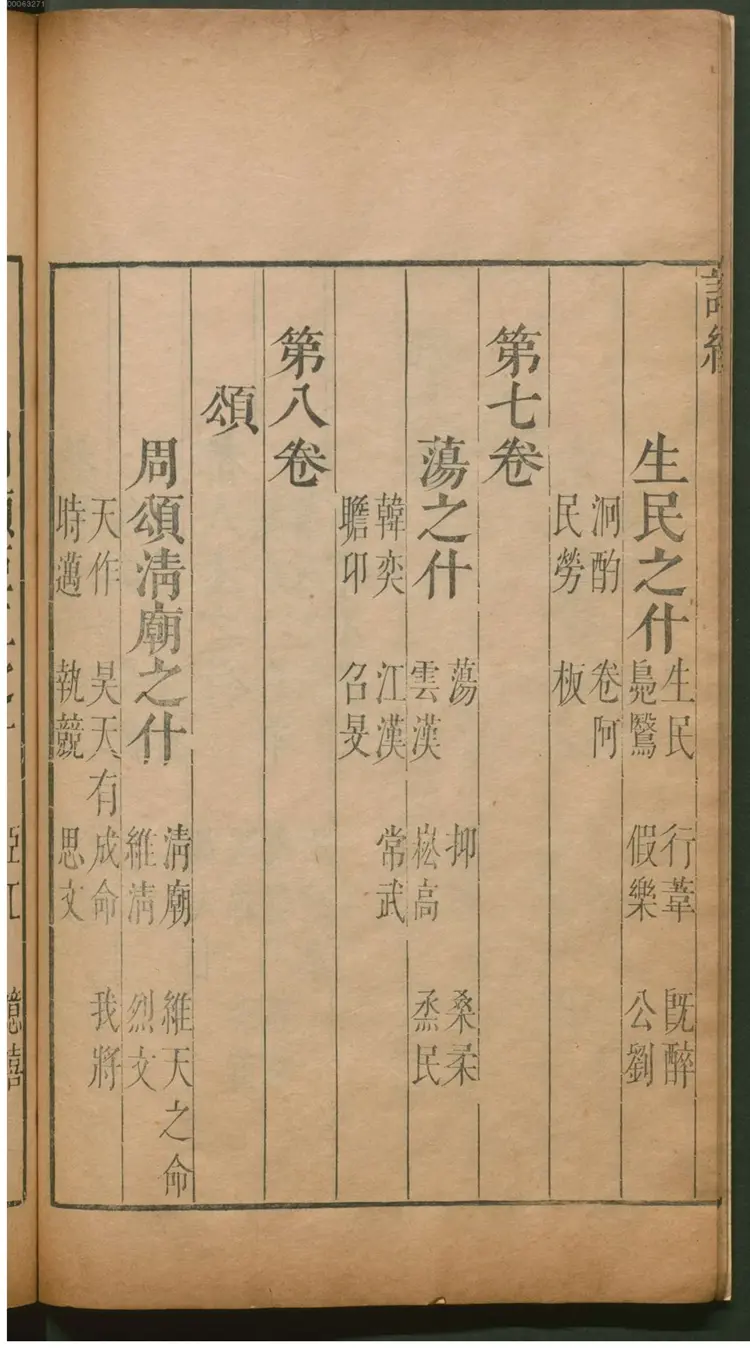 00063271
詩經
生民之什
生民 行葦 既醉
鳧鷖 假樂 公劉
泂酌 卷阿
民勞 板
第七卷
蕩之什
蕩 抑 桑柔
雲漢 崧高 烝民
韓奕 江漢 常武
瞻卬 召旻
第八卷
頌
周頌清廟之什
清廟 維天之命
維清 烈文
天作 昊天有成命 我將
時邁 執競 思文